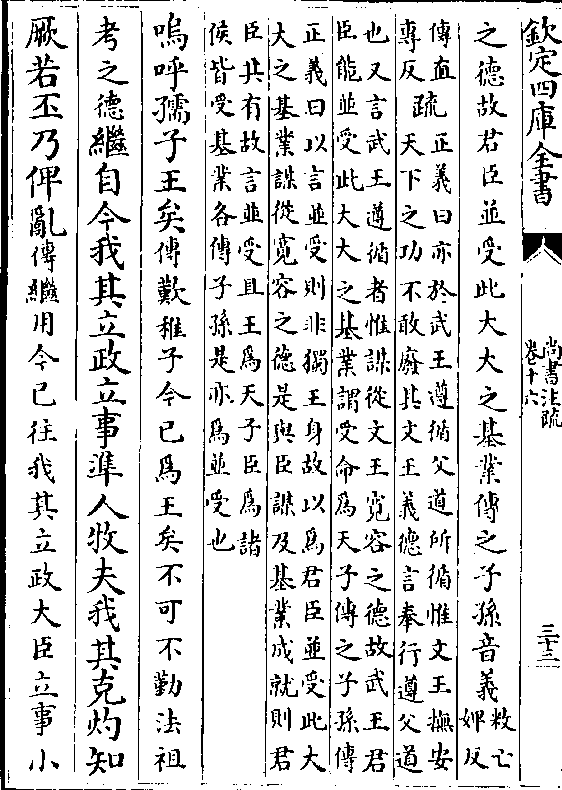 欽定四庫全書
尚書注疏
卷十六
三十三
之德故君臣並受此大大之基業傳之子孫音義敉亡
婢反
傳直
專反疏正義曰亦於武王遵循父道所循惟文王撫安
天下之功不敢廢其文王義德言奉行遵父道
也又言武王遵循者惟謀從文王寛容之德故武王君
臣能並受此大大之基業謂受命為天子傳之子孫傳
正義曰以言並受則非獨王身故以為君臣並受此大
大之基業謀從寛容之德是與臣謀及基業成就則君
臣共有故言並受且王為天子臣為諸
侯皆受基業各傳子孫是亦為並受也
嗚呼孺子王矣傳歎稚子今已為王矣不可不勤法祖
考之德繼自今我其立政立事準人牧夫我其克灼知
厥若丕乃俾亂傳繼用今已往我其立政大臣立事小